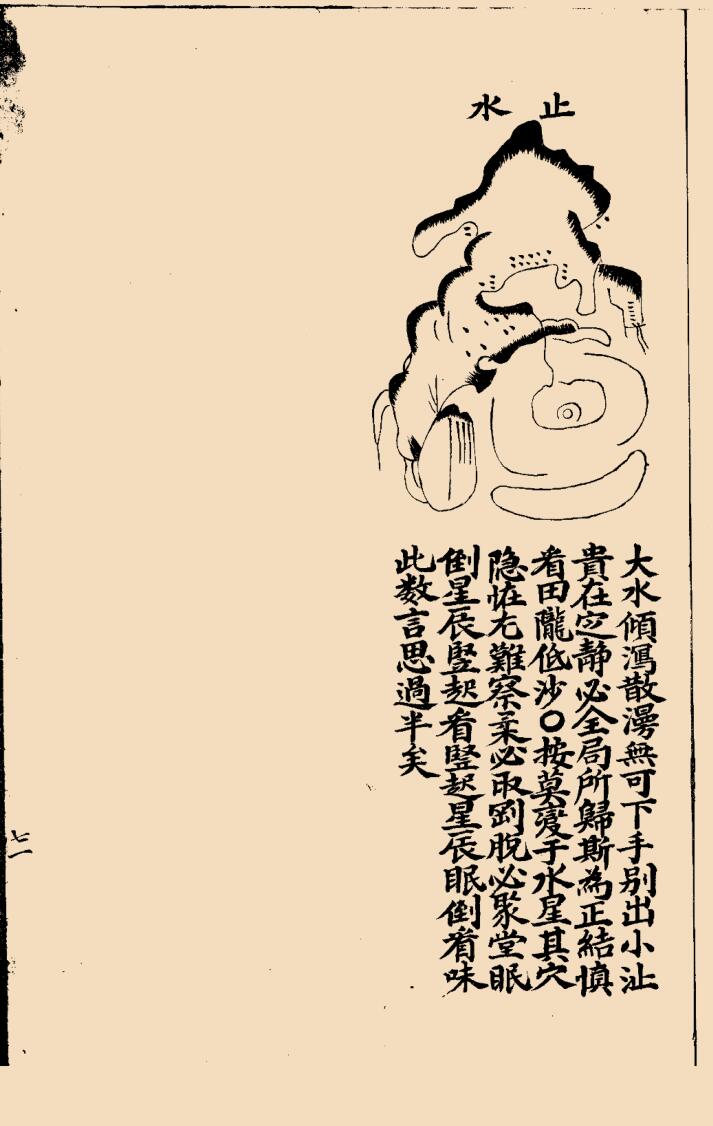 止水
大水傾瀉散漫無可下手别出小沚
貴在定静必全局所歸斯為正結慎
看田隴低沙○按莫變于水星其穴
隐怪尤難察柔必取剛脱必聚堂眠
倒星辰竪起看竪起星辰眠倒看味
此数言思過半矣
七一